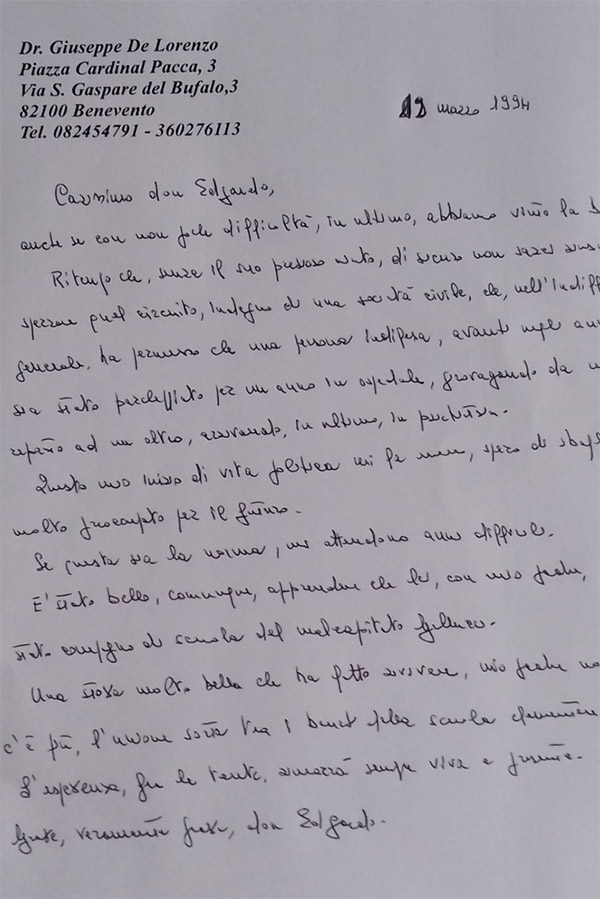 Dr. Giuseppe De Lorenzo
Piazza Cardinal Pacca, 3
Via S. Gaspare del Bufalo,3
82100 Benevento
Tel. 082454791 - 360276113
19 marzo 1994
Carissimo don Edgardo,
anche se con non poche difficoltà, in ultimo, abbiamo vinto la
Ritengo che, senza il suo prezioso aiuto, di sicuro non sarei
spezzare quel circuito, indegno di una società civile, che, nell'indiff
generale, ha permesso che una persona indifesa, avanti negli
sia stato parcheggiato per un anno in ospedale, girovagando da
reparto ad un altro, arrivando, in ultimo, in
Questo mio inizio di vita politica mi fa, spero di
molto preoccupato per il futuro.
Se questa sia la norma, mi attendono anni difficili.
E' stato bello, comunque, apprendere che lei, con mio padre,
stato compagno di scuola del malcapitato
Una storia molto bella che ha fatto rivivere, mio padre
c'è più, l'unione sorta tra i banchi della scuola elementare
L'esperienza, fra le tante, rimarrà sempre viva e presente.
Grazie, veramente grazie, don Edgardo.